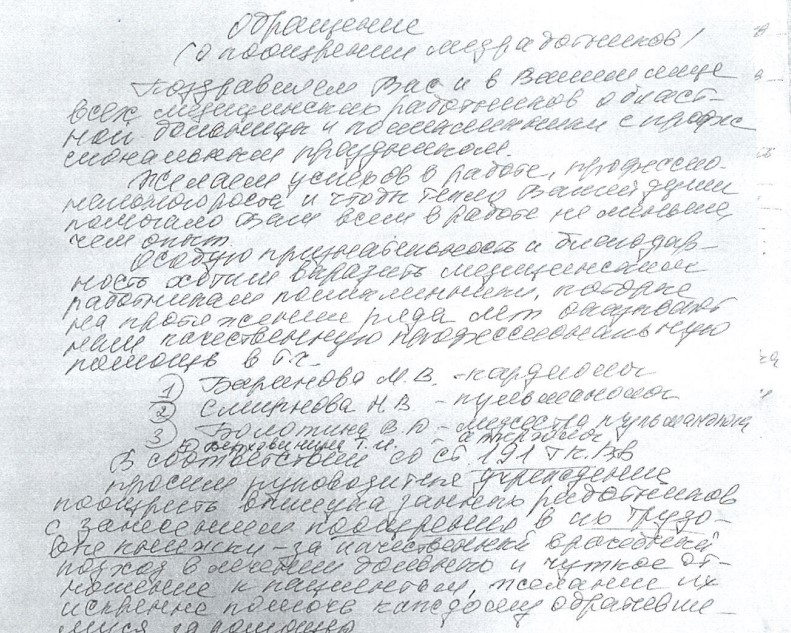 Обращение
(о поощрении медработников)
Поздравляем Вас и в Вашем лице
всех медицинских работников област-
ной больницы и поликлиники с професс
иональным праздником.
Желаем успехов в работе, професссио-
нального роста и чтобы тепло Вашей души
помогало Вам всем в работе не меньше,
чем опыт.
Особую признательность и благодар-
ность хотим выразить медицинским
работникам поликлиники, которые
на протяжении ряда лет оказывают
нам качественную профессиональную
помощь в т.ч.
1) Баранова М.В. - кардиолог
2) Смирнова Н.В. - пульманолог
3) Болотина В.Ю - медсестра пульманолога
Т.И.
В соответствии со ст. 191 ТК.
просим руководителя учреждения
поощрить вышеуказанных работников
с занесением поощрения в их трудо-
вые книжки - за качественный врачебный
подход в лечении больных и чуткое от-
ношение к пациентам, желание их
искренне помочь каждому обративше-
муся за помощью